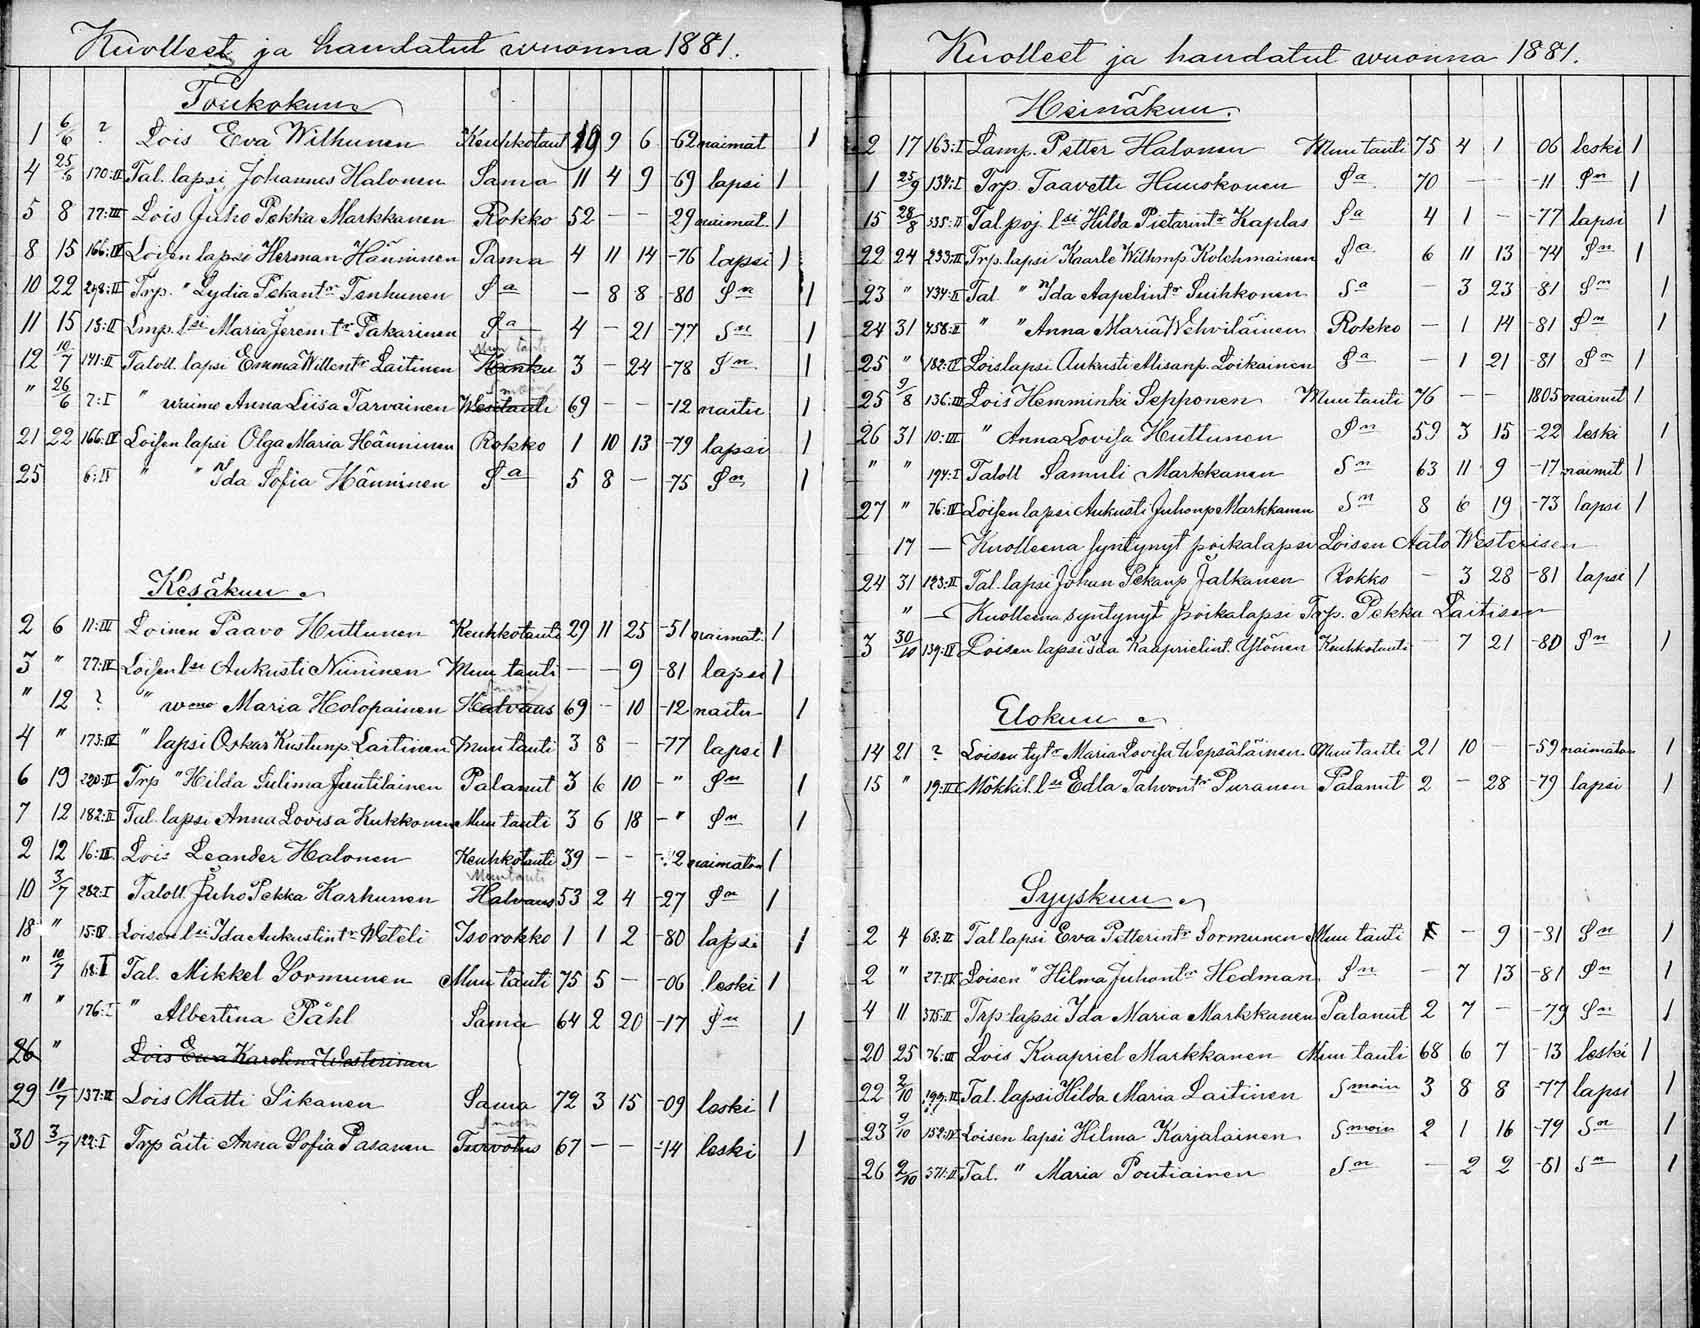 Kuolleet ja haudatut wuonna 1881.
Toukokuu
1 6/6 ? Lois Eva Wilhunen Keuhkotaut 19 9 6 -62 naimat 1
4 25/6 170:II Tal. lapsi Johannes Halonen Sama 11 4 9 -69 lapsi 1
5 8 77:III Lois Juho Pekka Markkanen Rokko 52 - - -29 naimat. 1
8 15 166:IV Loisen lapsi Herman Hänninen Sama 4 11 14 -76 lapsi 1
10 22 248:II Trp. " Lydia Pekantr Tenhunen Sa - 8 8 -80 Sn 1
11 15 18:II Lmp. lsi Maria Jerem.tr Pakarinen Sa 4 - 21 -77 Sn 1
12 10/7 141:II Taloll. lapsi Emma Willentr Laitinen Hinku Muu tauti 3 - 24 -78 Sn 1
" 26/6 7:I " waimo Anna Liisa Tarvainen Wesitauti Smoin 69 - - -12 naitu 1
21 22 166:IV Loisen lapsi Olga Maria Hänninen Rokko 1 10 13 -79 lapsi 1
25 6:IV " " Ida Sofia Hänninen Sa 5 8 - -75 Sn 1
Kesäkuu
2 6 11:III Loinen Paavo Huttunen Keuhkotauti 29 11 25 -51 naimat. 1
3 " 77:IV Loisen lsi Aukusti Niininen Muu tauti - - 9 -81 lapsi 1
" 12 ? " wmo Maria Holopainen Halvaus Smoin 69 - 10 -12 naitu 1
4 " 173:IV " lapsi Oskar Kustunp. Laitinen Muu tauti 3 8 - -77 lapsi 1
6 19 220:II Trp " Hilda Sulima Juutilainen Palanut 3 6 10 -" Sn 1
7 12 182:II Tal. lapsi Anna Lovisa Kukkonen Muu tauti 3 6 18 -" Sn 1
2 12 16:III Lois Leander Halonen Keuhkotauti 39 - - 2 naimaton 1
10 3/7 282:I Taloll. Juho Pekka Karhunen Halvaus Muu tauti 53 2 4 -27 Sn 1
18 " 15:IV Loisen lsi Ida Aukustintr Weteli Isorokko 1 1 2 -80 lapsi 1
" 10/7 68:I Tal. Mikkel Sormunen Muu tauti 75 5 - -06 leski 1
" " 176:I " Albertina Påhl Sama 64 2 20 -17 Sn 1
26 " Lois Ewa Karolina Westerinen
29 10/7 137:II Lois Matti Sikanen Sama 72 3 15 -09 leski 1
30 3/7 122:I Trp äiti Anna Sofia Pasanen Turvotus Smoin 67 - - -14 leski 1
Kuolleet ja haudatut wuonna 1881.
Heinäkuu.
2 17 163:I Lamp. Petter Halonen Muu tauti 75 4 1 06 leski 1
1 25/9 134:I Trp. Taavetti Huuskonen Sa 70 - - -11 Sn 1
15 28/8 335:II Tal. poj. lsi Hilda Pietarintr Kaplas Sa 4 1 - -77 lapsi 1
22 24 233:II Trp. lapsi Kaarle Wilhmp. Kolehmainen Sa 6 11 13 -74 Sn 1
23 " 434:II Tal. " Ida Aapelintr Suihkonen Sa - 3 23 -81 Sn 1
24 31 458:II " " Anna Maria Wehviläinen Rokko - 1 14 -81 Sn 1
25 " 182:IV Loislapsi Aukusti Misanp. Loikainen Sa - 1 21 -81 Sn 1
25 9/8 136:III Lois Hemminki Sepponen Muu tauti 76 - - 1805 naimut 1
26 31 10:III " Anna Lovisa Huttunen Sn 59 3 15 -22 leski 1
" " 194:I Taloll Samuli Markkanen Sn 63 11 9 -17 naimut 1
27 " 76:IV Loisen lapsi Aukusti Juhonp Markkanen Sn 8 6 19 -73 lapsi 1
17 - Kuolleena syntynyt poikalapsi Loisen Aato Westerisen
24 31 123:II Tal. lapsi Johan Pekanp Jalkanen Rokko - 3 28 -81 lapsi 1
" - Kuolleena syntynyt poikalapsi Trp. Pekka Laitisen
3 30/10 139:IV Loisen lapsi Ida Kaaprielint. Ylönen Keuhkotauti - 7 21 -80 Sn 1
Elokuu
14 21 ? Loisen tytr Maria Lovisa Wepsäläinen Muu tauti 21 10 - -59 naimaton 1
15 " 19:III Mökkil. lsi Edla Tahvontr Puranen Palanut 2 - 28 -79 lapsi 1
Syyskuu
2 4 68:II Tal lapsi Eva Petterintr Sormunen Muu tauti - 9 -81 Sn 1
2 " 27:IV Loisen " Hilma Juhontr Hedman Sn - 7 13 -81 Sn 1
4 11 375:II Trp. lapsi Ida Maria Markkanen Palanut 2 7 - -79 Sn 1
20 25 76:III Lois Kaapriel Markkanen Muu tauti 68 6 7 -13 leski 1
22 2/10 Tal. lapsi Hilda Maria Laitinen Smoin 3 8 8 -77 lapsi 1
23 9/10 152:IV Loisen lapsi Hilma Karjalainen Smoin 2 1 16 -79 Sn 1
26 2/10 371:II Tal. " Maria Poutiainen Sn - 2 2 -81 Sn 1